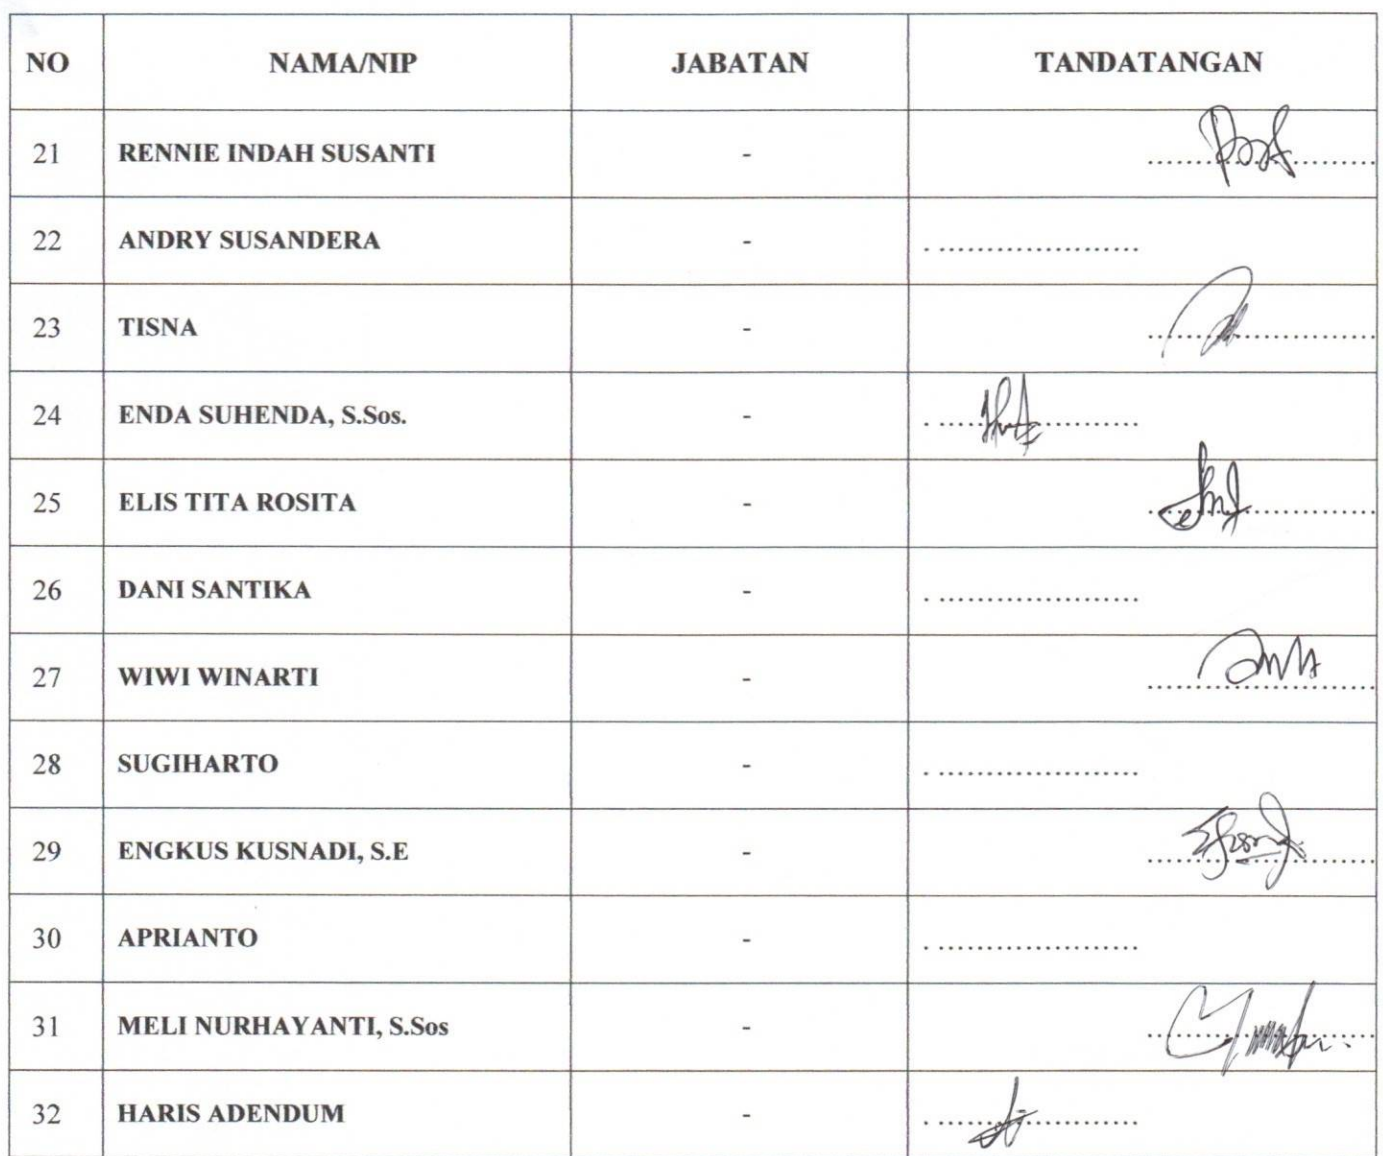 NO NAMA/NIP JABATAN TANDATANGAN
21 RENNIE INDAH SUSANTI - ....................
22 ANDRY SUSANDERA - . ....................
23 TISNA - ....................
24 ENDA SUHENDA, S.Sos. - . ....................
25 ELIS TITA ROSITA - ....................
26 DANI SANTIKA - . ....................
27 WIWI WINARTI - ....................
28 SUGIHARTO - . ....................
29 ENGKUS KUSNADI, S.E - ....................
30 APRIANTO - . ....................
31 MELI NURHAYANTI, S.Sos - ....................
32 HARIS ADENDUM - . ....................